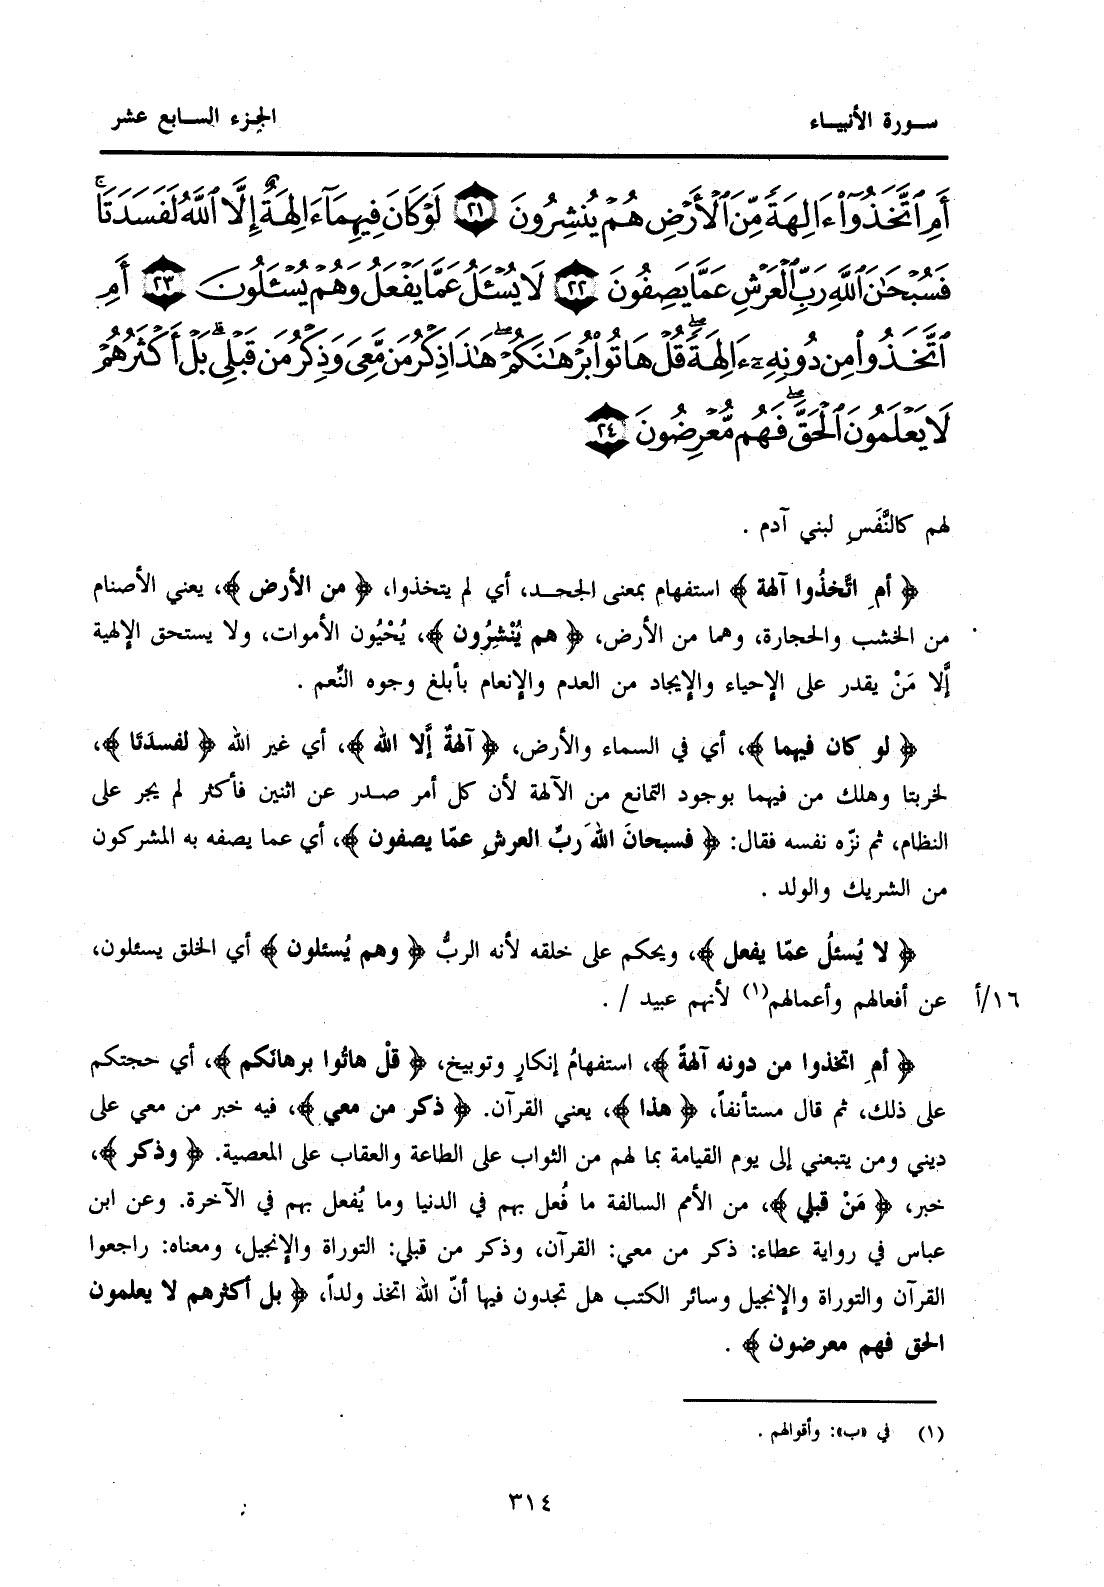 سورة الأنبياء
الجزء السابع عشر
أَمِ ٱتَّخَذُوٓا۟ ءَالِهَةً مِّنَ ٱلْأَرْضِ هُمْ يُنشِرُونَ ٢١ لَوْ كَانَ فِيهِمَآ ءَالِهَةٌ إِلَّا ٱللَّهُ لَفَسَدَتَا ۚ
فَسُبْحَٰنَ ٱللَّهِ رَبِّ ٱلْعَرْشِ عَمَّا يَصِفُونَ ٢٢ لَا يُسْـَٔلُ عَمَّا يَفْعَلُ وَهُمْ يُسْـَٔلُونَ ٢٣ أَمِ
ٱتَّخَذُوا۟ مِن دُونِهِۦٓ ءَالِهَةً ۖ قُلْ هَاتُوا۟ بُرْهَٰنَكُمْ ۖ هَٰذَا ذِكْرُ مَن مَّعِىَ وَذِكْرُ مَن قَبْلِى ۗ بَلْ أَكْثَرُهُمْ
لَا يَعْلَمُونَ ٱلْحَقَّ ۖ فَهُم مُّعْرِضُونَ ٢٤
لهم كالنَّفَسِ لبني آدم .
﴿ أمِ اتَّخذُوا آلهة ﴾ استفهام بمعنى الجحد، أي لم يتخذوا، ﴿ من الأرض ﴾، يعني الأصنام
من الخشب والحجارة، وهما من الأرض، ﴿ هم يُنْشِرُون ﴾، يُحْيُون الأموات، ولا يستحق الإلهية
إَّلا مَنْ يقدر على الإحياء والإيجاد من العدم والإنعام بأبلغ وجوه النِّعم .
﴿ لو كان فيهما ﴾، أي في السماء والأرض، ﴿ آلهةٌ إَّلا الله ﴾، أي غير الله ﴿ لفسدَتَا ﴾،
لخربتا وهلك من فيهما بوجود التمانع من الآلهة لأن كل أمر صدر عن اثنين فأكثر لم يجر على
النظام، ثم نزّه نفسه فقال: ﴿ فسبحانَ اللهَ ربِّ العرشِ عمّا يصفون ﴾، أي عما يصفه به المشركون
من الشريك والولد .
﴿ لا يُسئلُ عمّا يفعل ﴾، ويحكم على خلقه لأنه الربُّ ﴿ وهم يُسئلون ﴾ أي الخلق يسئلون،
١٦/أ عن أفعالهم وأعمالهم(١) لأنهم عبيد / .
﴿ أمِ اتخذوا من دونه آلهةً ﴾، استفهامُ إنكارٍ وتوبيخ، ﴿ قلْ هاتُوا برهانَكم ﴾، أي حجتكم
على ذلك، ثم قال مستأنفاً، ﴿ هذا ﴾، يعني القرآن. ﴿ ذكر من معي ﴾، فيه خبر من معي على
ديني ومن يتبعني إلى يوم القيامة بما لهم من الثواب على الطاعة والعقاب على المعصية. ﴿ وذكر ﴾،
خبر، ﴿ مَنْ قبلي ﴾، من الأمم السالفة ما فُعل بهم في الدنيا وما يُفعل بهم في الآخرة. وعن ابن
عباس في رواية عطاء: ذكر من معي: القرآن، وذكر من قبلي: التوراة والإنجيل، ومعناه: راجعوا
القرآن والتوراة والإنجيل وسائر الكتب هل تجدون فيها أنّ الله اتخذ ولداً، ﴿ بل أكثرهم لا يعلمون
الحق فهم معرضون ﴾ .
(١) في «ب»: وأقوالهم .
٣١٤